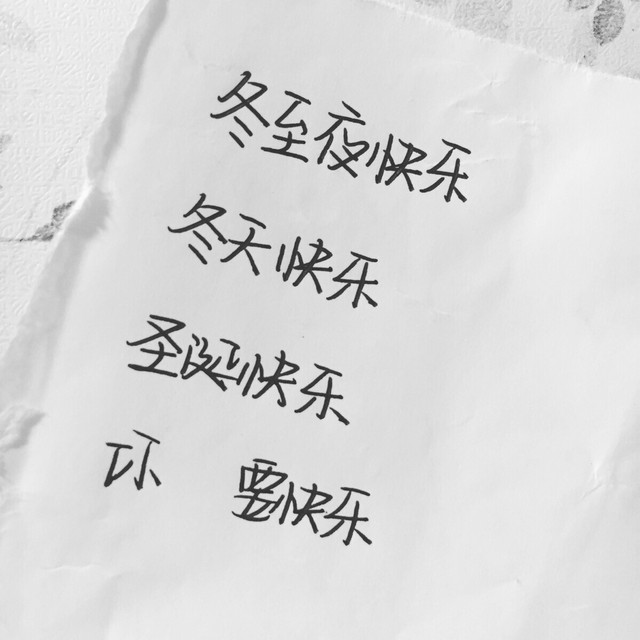 冬至夜快乐
冬天快乐
圣诞快乐
要快乐